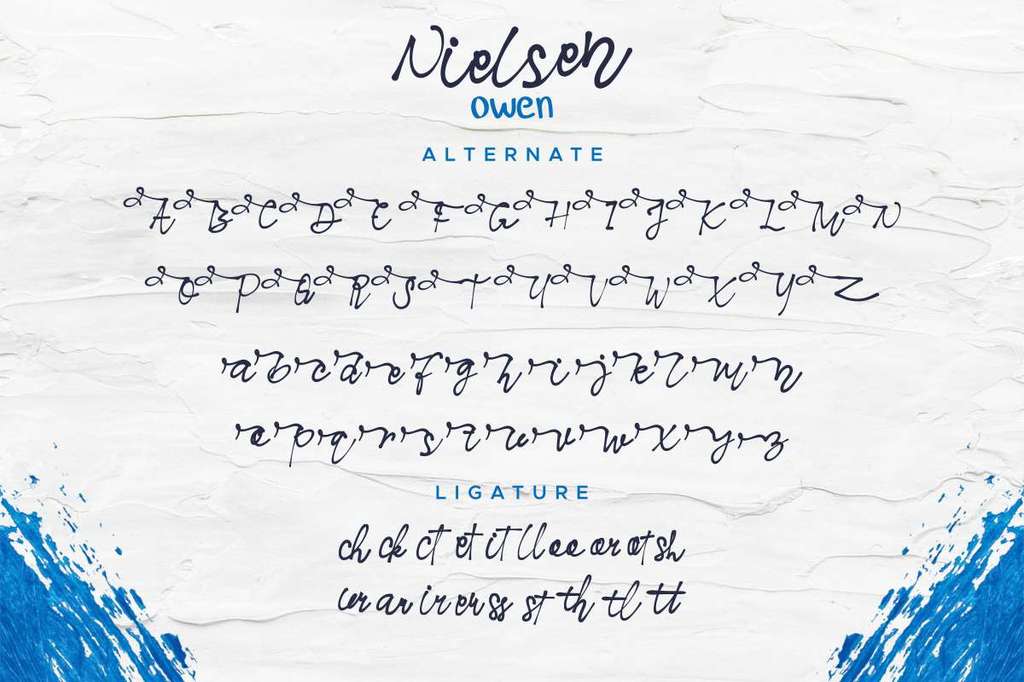 Nielsen
owen
ALTERNATE
A B C D E F G H I J K L M N
O P Q R S T U V W X Y Z
a b c d e f g h i j k l m n
o p q r s t u v w x y z
LIGATURE
ch ck ct et it ll ee or ot sh
ur ar ir er ss st th tl tt